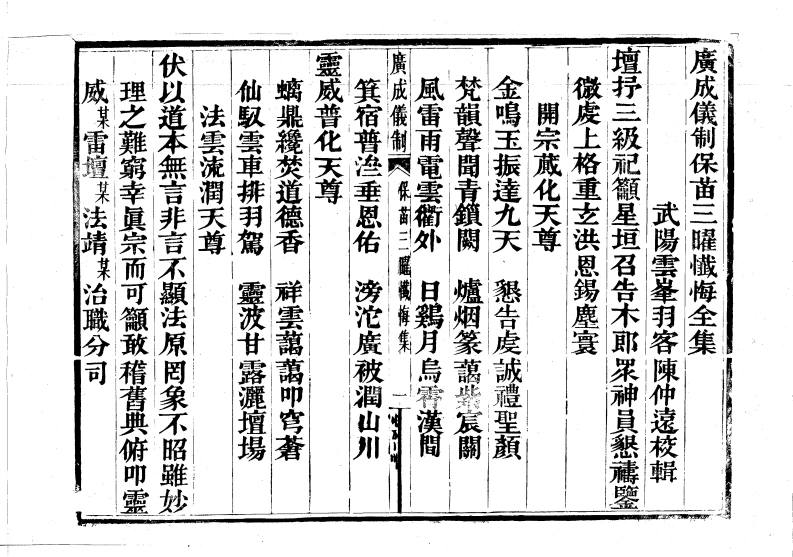 廣成儀制保苗三曜懺悔全集
武陽雲峯羽客陳仲遠校輯
壇抒三級祀籲星垣召告木郎眾神員懇禱鑒
微虔上格重玄洪恩錫塵寰
開宗蕆化天尊
金鳴玉振達九天　懇告虔誠禮聖顏
梵韻聲聞青鎖闕　爐烟篆藹紫宸關
風雷雨電雲衢外　日鷄月烏霄漢間
廣成儀制　保苗三曜懺悔集　一
箕宿普泣垂恩佑　滂沱廣被潤山川
靈威普化天尊
螭鼎纔焚道德香　祥雲藹藹叩穹蒼
仙馭雲車排羽駕　靈波甘露灑壇場
法雲流潤天尊
伏以道本無言非言不顯法原罔象不昭雖妙
理之難窮幸眞宗而可籲敢稽舊典俯叩靈
威某雷壇某法靖某治職分司